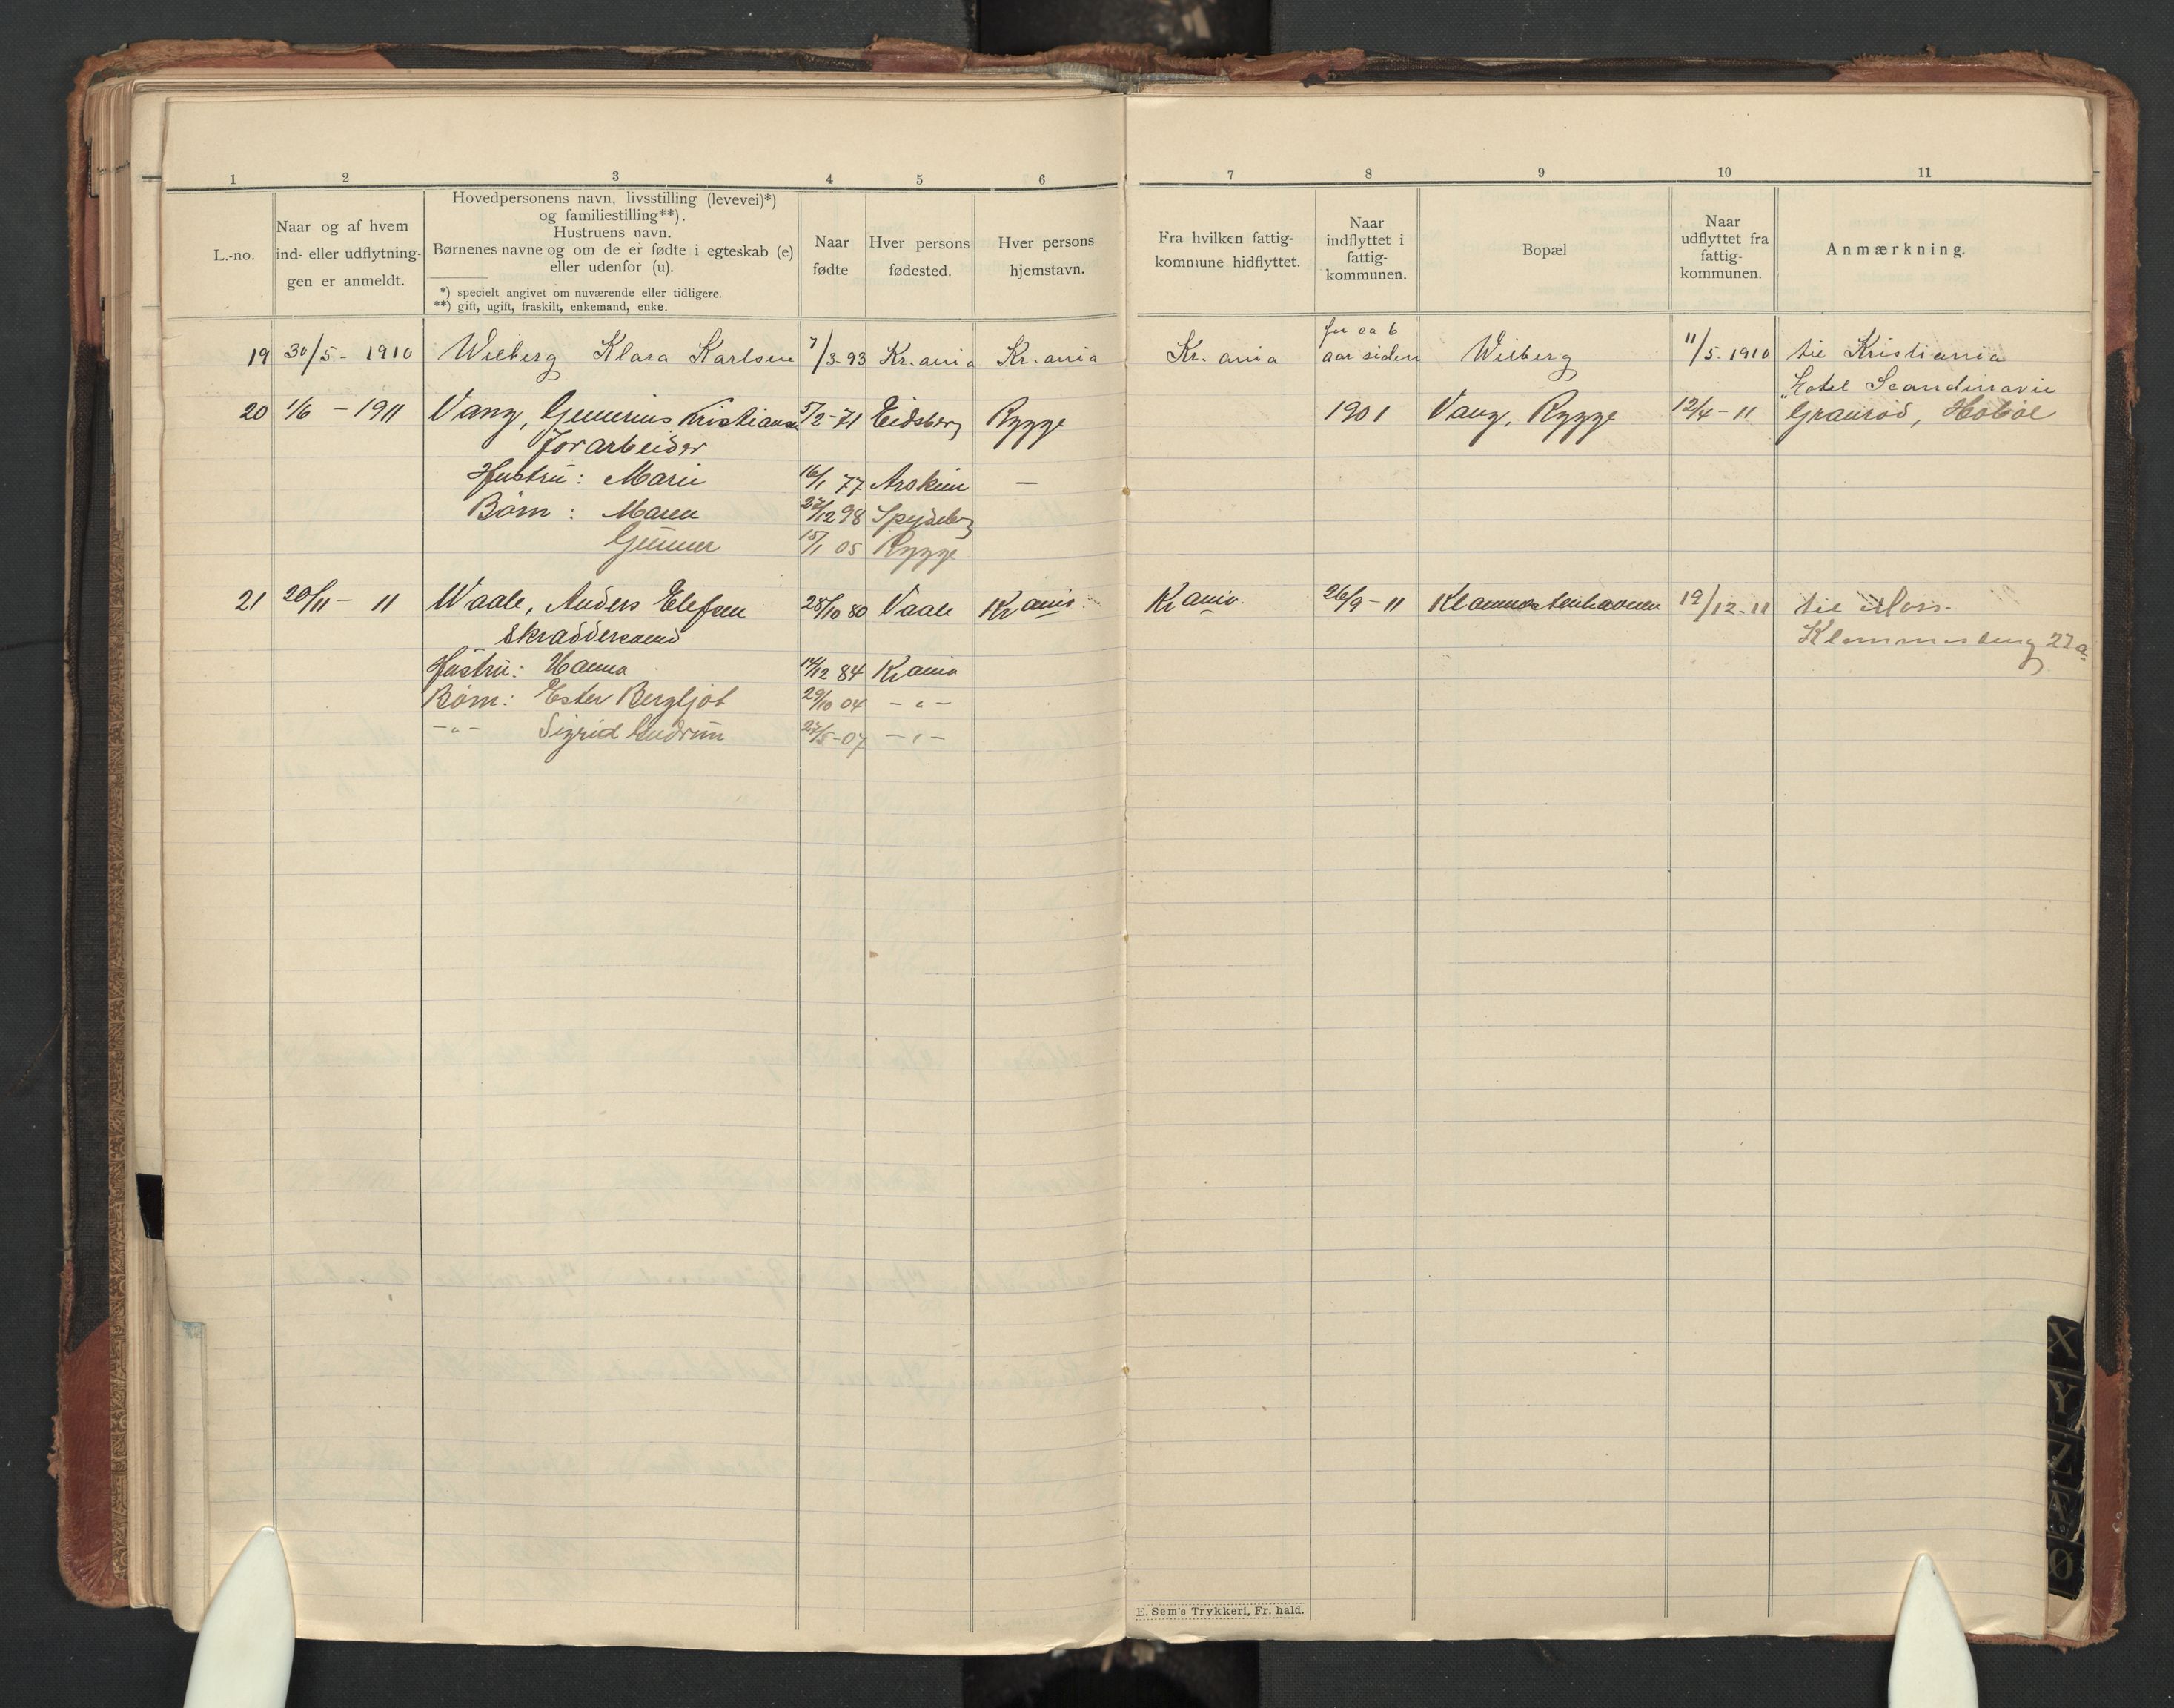 1 2 3 4 5 6 7 8 9 10 11
L.-no.
Naar og af hvem
ind- eller udflytnin-
gen er anmeldt.
Hovedpersonens navn, livsstilling (levevei)*)
og familiestilling**).
Hustruens navn.
Børnenes navne og om de er fødte i egteskab (e)
eller udenfor (u).
*) specielt angivet om nuværende eller tidligere.
**) gift, ugift, fraskilt, enkemand, enke.
Naar
fødte
Hver persons
fødested.
Hver persons
hjemstavn.
Fra hvilken fattig-
kommune hidflyttet.
Naar
indflyttet i
fattig-
kommunen.
Bopæl
Naar
udflyttet fra
fattig-
kommunen.
Anmærkning.
for ca 6
19 30/5 - 1910 Wilberg Klara Karlsen 7/3-93 Kr.ania Kr.ania Kr.ania aar siden Wilberg 11/5-1910 til Kristiania
"Hotel Scandinavie
20 1/6 - 1911 Vang, Gunerius Kristiansen 5/2-71 Eidsberg Rygge 1901 Vang, Rygge 12/4-11 Graurød, Hobøl
Jorarbeider
Hustru: Marie 16/1 77 Askim —
Børn: Maren 27/12 98 Spydeberg
Gunner 15/1 05 Rygge
21 20/11 - 11 Waale, Anders Elefsen 28/10 80 Vaale Krania Krania 26/9-11 19/12-11 til Moss-
Skræddersvend Klommesberg 27a
Hustru: Hanna 14/12 84 Krania
Børn: Ester Bergljot 29/10 04 - " -
- " - Sigrid Gudrun 27/5-07 - " -
E. Sem's Trykkeri, Fr. hald.
X
Y
Z
Æ
Ø